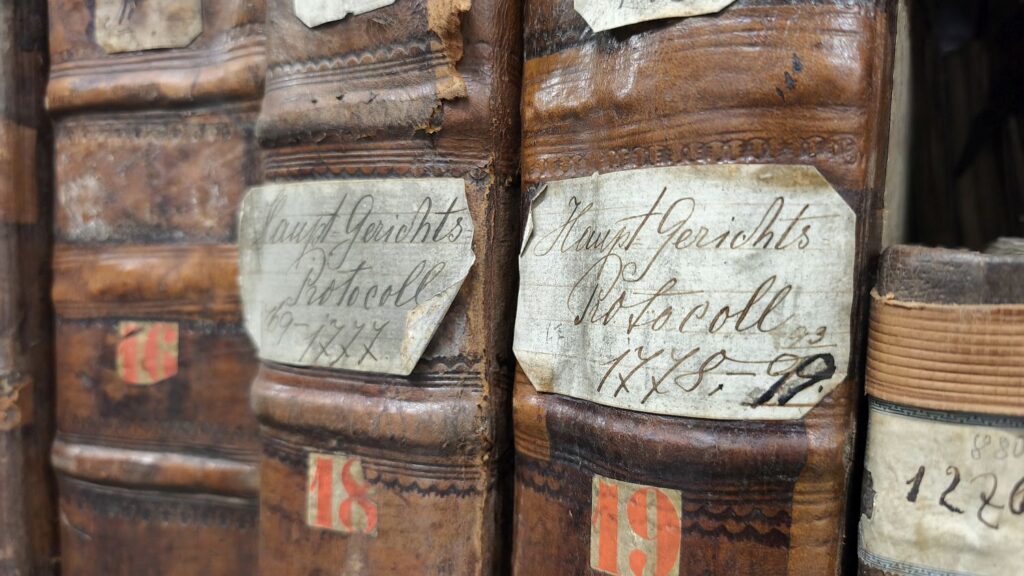 16
Haupt Gerichts
Protocoll
69-1777
18
Haupt Gerichts
Protocoll
93
1778.-99.
19
880
1226